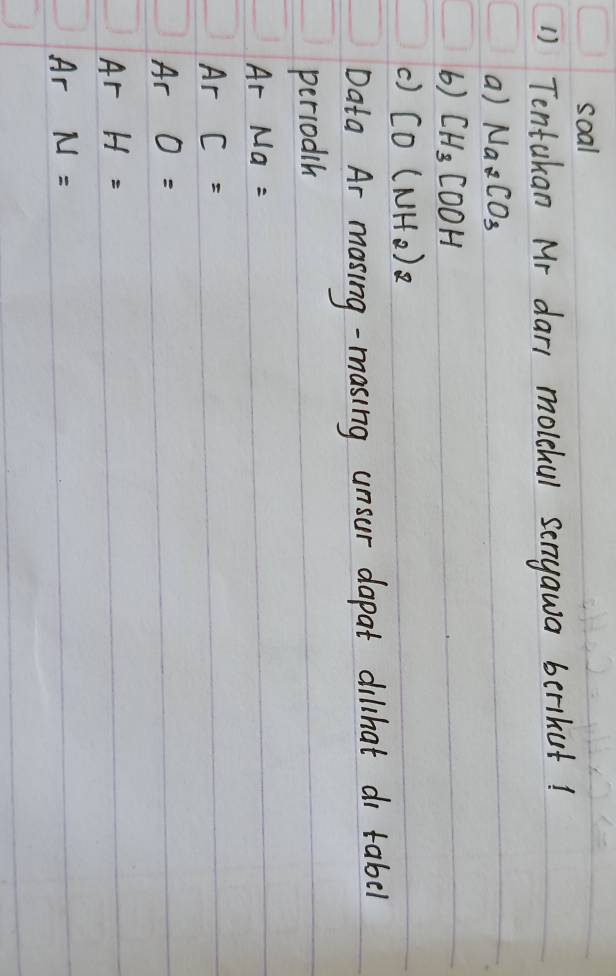 soal
1) Tentukan Mr dari molekul senyawa berikut !
a) Na₂CO₃
b) CH₃COOH
c) CO(NH₂)₂
Data Ar masing-masing unsur dapat dilihat di tabel
periodik
Ar Na =
Ar C =
Ar O =
Ar H =
Ar N =